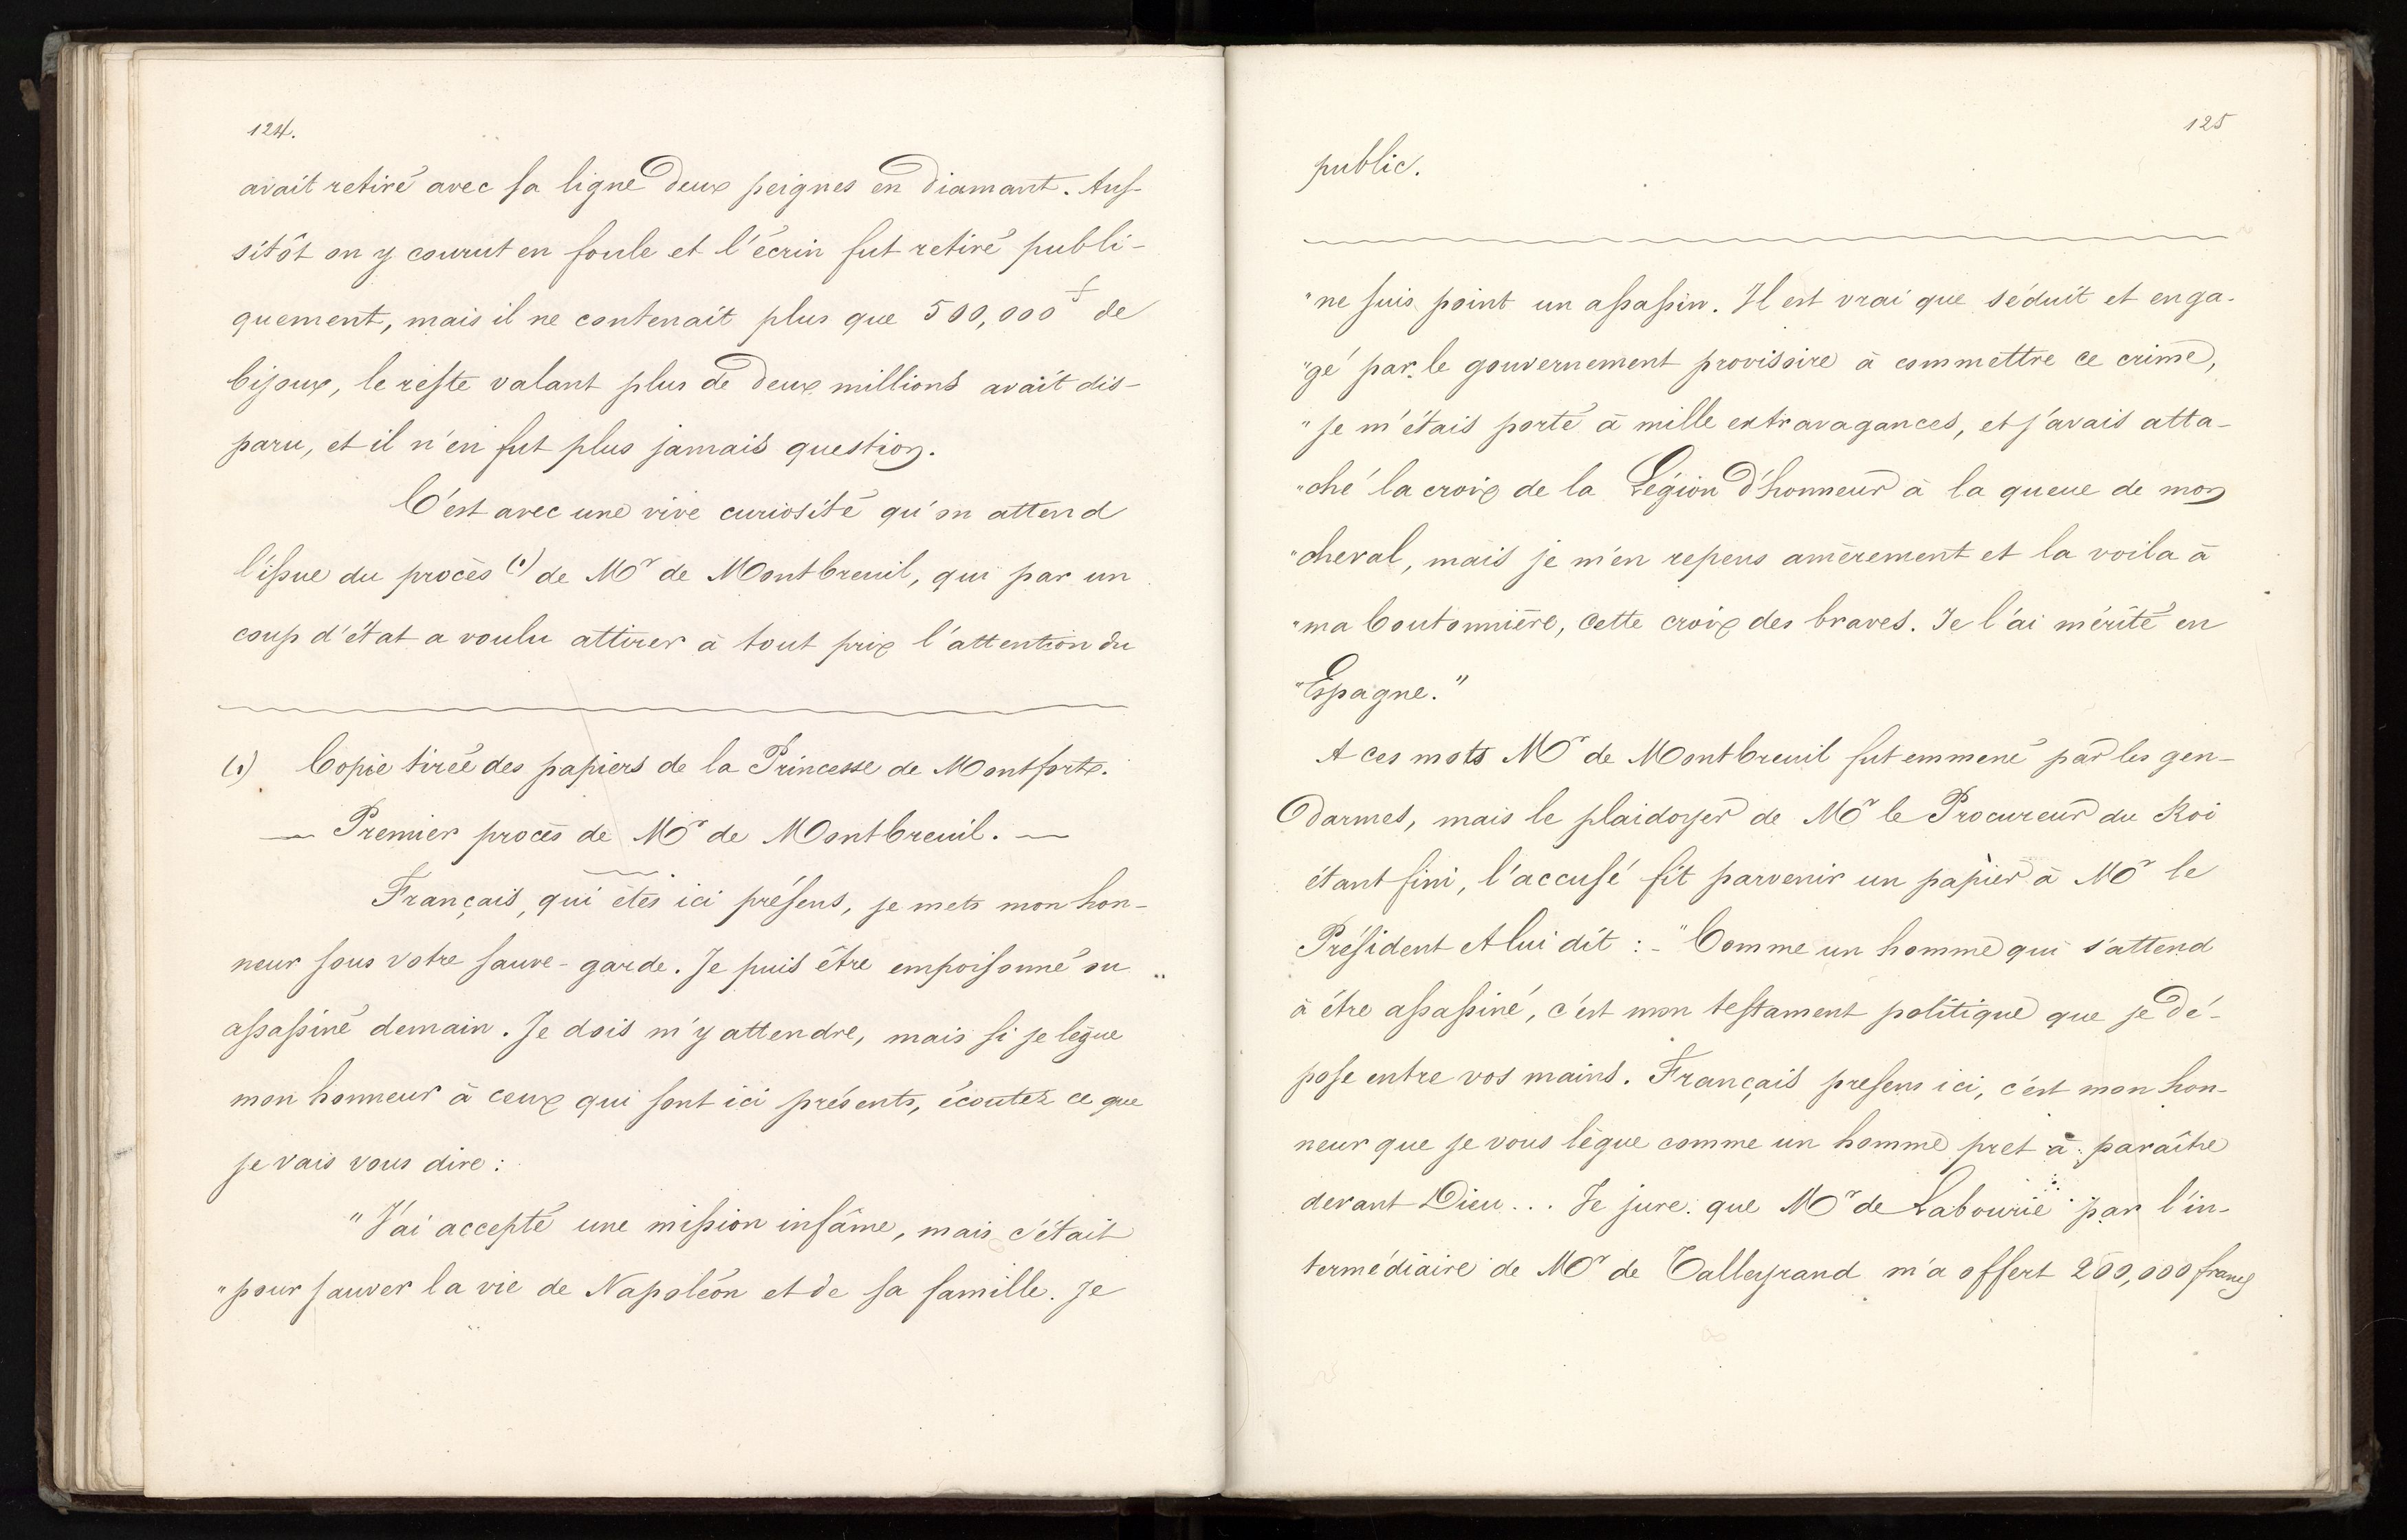 124.
avait retiré avec sa ligne deux peignes en diamant. Aus-
sitôt on y courut en foule et l'écrin fut retiré publi-
quement, mais il ne contenait plus que 500,000 f de
bijoux, le reste valant plus de deux millions avait dis-
paru, et il n'en fut plus jamais question.
C'est avec une vive curiosité qu'on attend
l'issue du procès (1) de Mr de Montbreuil, qui par un
coup d'état a voulu attirer à tout prix l'attention du
(1) Copie tirée des papiers de la Princesse de Montfort.
— Premier procès de Mr de Montbreuil. —
Français, qui êtes ici présens, je mets mon hon-
neur sous votre sauve-garde. Je puis être empoisonné ou
assassiné demain. Je dois m'y attendre, mais si je lègue
mon honneur à ceux qui sont ici présents, écoutez ce que
je vais vous dire :
"J'ai accepté une mission infâme, mais c'était
"pour sauver la vie de Napoléon et de sa famille. Je
125
public.
"ne suis point un assassin. Il est vrai que séduit et enga-
"gé par le gouvernement provisoire à commettre ce crime,
"je m'étais porté à mille extravagances, et j'avais atta-
"ché la croix de la Légion d'honneur à la queue de mon
"cheval, mais je m'en repens amèrement et la voila à
"ma boutonnière, cette croix des braves. Je l'ai mérité en
"Espagne."
A ces mots Mr de Montbreuil fut emmené par les gen-
darmes, mais le plaidoyer de Mr le Procureur du Roi
étant fini, l'accusé fit parvenir un papier à Mr le
Président et lui dit : - "Comme un homme qui s'attend
à être assassiné, c'est mon testament politique que je dé-
pose entre vos mains. Français presens ici, c'est mon hon-
neur que je vous lègue comme un homme pret à paraître
devant Dieu... Je jure que Mr de Labourie par l'in-
termédiaire de Mr de Talleyrand m'a offert 200,000 francs